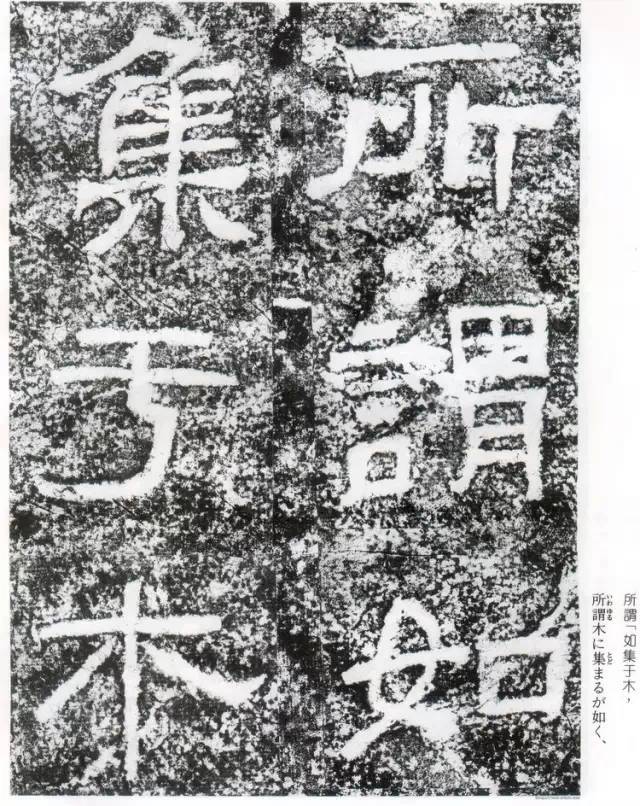 所謂如
集于木
所謂「如集于木，
所謂木に集まるが如く、
いわゆる